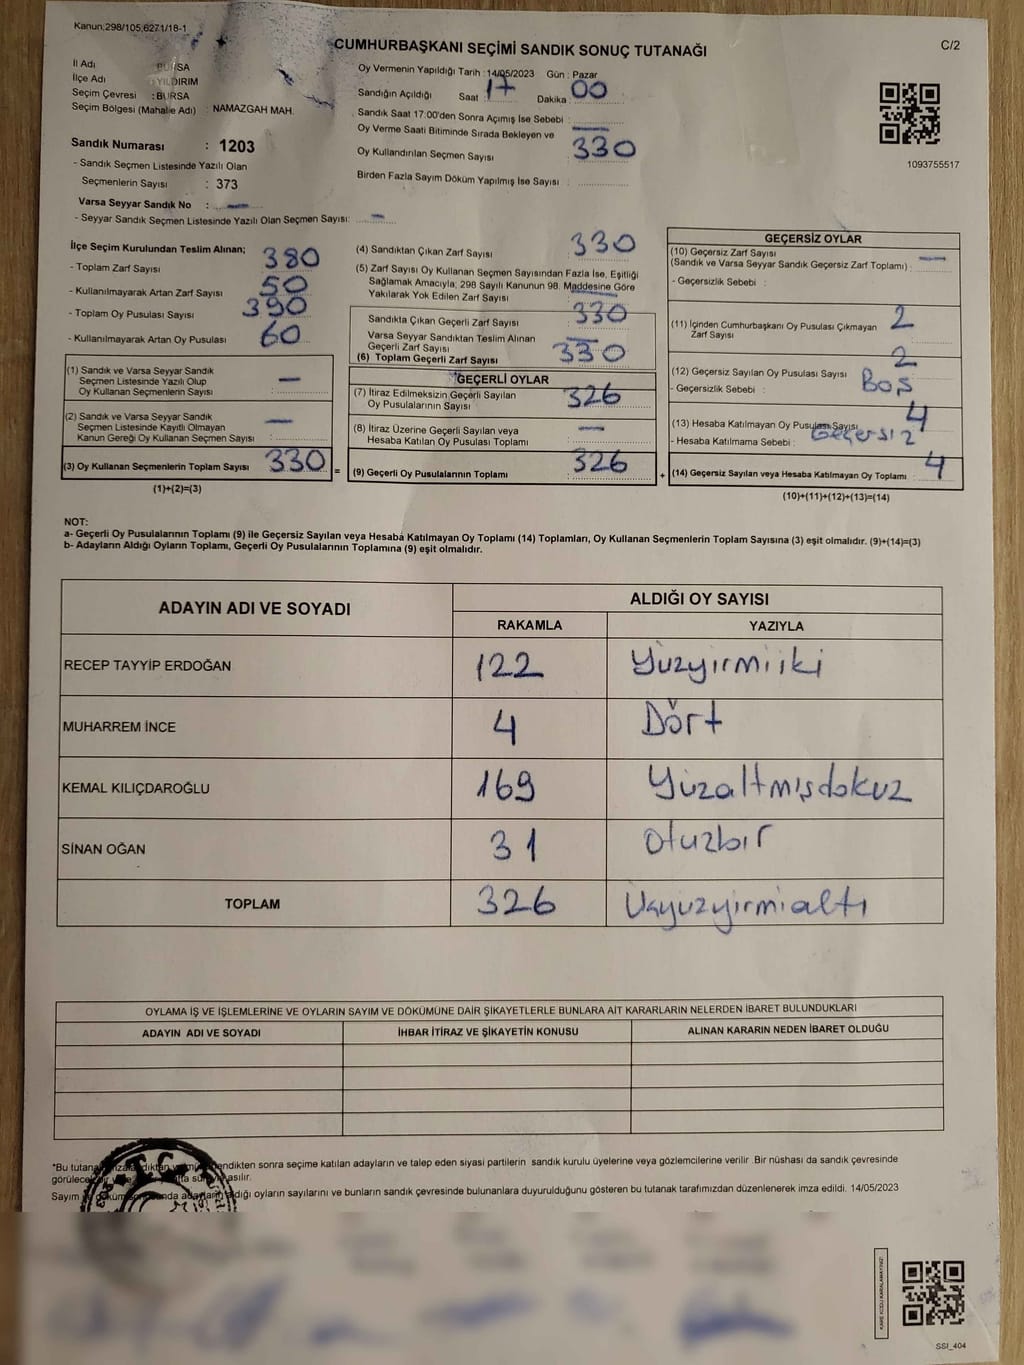 Kanun:298/105,6271/18-1
C/2
CUMHURBAŞKANI SEÇİMİ SANDIK SONUÇ TUTANAĞI
İl Adı : BURSA
İlçe Adı : YILDIRIM
Seçim Çevresi : BURSA
Seçim Bölgesi (Mahalle Adı) : NAMAZGAH MAH.
Sandık Numarası : 1203
- Sandık Seçmen Listesinde Yazılı Olan
Seçmenlerin Sayısı : 373
Varsa Seyyar Sandık No : —
- Seyyar Sandık Seçmen Listesinde Yazılı Olan Seçmen Sayısı: —
Oy Vermenin Yapıldığı Tarih : 14/05/2023 Gün : Pazar
Sandığın Açıldığı Saat : 17 Dakika : 00
Sandık Saat 17:00'den Sonra Açımış İse Sebebi : —
Oy Verme Saati Bitiminde Sırada Bekleyen ve
Oy Kullandırılan Seçmen Sayısı : 330
Birden Fazla Sayım Döküm Yapılmış İse Sayısı :
1093755517
İlçe Seçim Kurulundan Teslim Alınan;
- Toplam Zarf Sayısı 380
- Kullanılmayarak Artan Zarf Sayısı 50
- Toplam Oy Pusulası Sayısı 390
- Kullanılmayarak Artan Oy Pusulası 60
(1) Sandık ve Varsa Seyyar Sandık
Seçmen Listesinde Yazılı Olup
Oy Kullanan Seçmenlerin Sayısı —
(2) Sandık ve Varsa Seyyar Sandık
Seçmen Listesinde Kayıtlı Olmayan
Kanun Gereği Oy Kullanan Seçmen Sayısı —
(3) Oy Kullanan Seçmenlerin Toplam Sayısı 330
(1)+(2)=(3)
=
(4) Sandıktan Çıkan Zarf Sayısı 330
(5) Zarf Sayısı Oy Kullanan Seçmen Sayısından Fazla İse, Eşitliği
Sağlamak Amacıyla; 298 Sayılı Kanunun 98. Maddesine Göre
Yakılarak Yok Edilen Zarf Sayısı —
Sandıkta Çıkan Geçerli Zarf Sayısı 330
Varsa Seyyar Sandıktan Teslim Alınan
Geçerli Zarf Sayısı —
(6) Toplam Geçerli Zarf Sayısı 330
GEÇERLİ OYLAR
(7) İtiraz Edilmeksizin Geçerli Sayılan
Oy Pusulalarının Sayısı 326
(8) İtiraz Üzerine Geçerli Sayılan veya
Hesaba Katılan Oy Pusulası Toplamı —
(9) Geçerli Oy Pusulalarının Toplamı 326
+
GEÇERSİZ OYLAR
(10) Geçersiz Zarf Sayısı
(Sandık ve Varsa Seyyar Sandık Geçersiz Zarf Toplamı) : —
- Geçersizlik Sebebi :
(11) İçinden Cumhurbaşkanı Oy Pusulası Çıkmayan
Zarf Sayısı 2
(12) Geçersiz Sayılan Oy Pusulası Sayısı 2
- Geçersizlik Sebebi : Boş
(13) Hesaba Katılmayan Oy Pusulası Sayısı 4
- Hesaba Katılmama Sebebi : Geçersiz
(14) Geçersiz Sayılan veya Hesaba Katılmayan Oy Toplamı 4
(10)+(11)+(12)+(13)=(14)
NOT:
a- Geçerli Oy Pusulalarının Toplamı (9) ile Geçersiz Sayılan veya Hesaba Katılmayan Oy Toplamı (14) Toplamları, Oy Kullanan Seçmenlerin Toplam Sayısına (3) eşit olmalıdır. (9)+(14)=(3)
b- Adayların Aldığı Oyların Toplamı, Geçerli Oy Pusulalarının Toplamına (9) eşit olmalıdır.
ADAYIN ADI VE SOYADI ALDIĞI OY SAYISI
RAKAMLA YAZIYLA
RECEP TAYYİP ERDOĞAN 122 Yüzyirmiiki
MUHARREM İNCE 4 Dört
KEMAL KILIÇDAROĞLU 169 Yüzaltmışdokuz
SİNAN OĞAN 31 otuzbir
TOPLAM 326 Üçyüzyirmialtı
OYLAMA İŞ VE İŞLEMLERİNE VE OYLARIN SAYIM VE DÖKÜMÜNE DAİR ŞİKAYETLERLE BUNLARA AİT KARARLARIN NELERDEN İBARET BULUNDUKLARI
ADAYIN ADI VE SOYADI İHBAR İTİRAZ VE ŞİKAYETİN KONUSU ALINAN KARARIN NEDEN İBARET OLDUĞU
*Bu sonra seçime katılan adayların ve talep eden siyasi partilerin sandık kurulu üyelerine veya gözlemcilerine verilir. Bir nüshası da sandık çevresinde
asılır.
Sayım oyların sayılarını ve bunların sandık çevresinde bulunanlara duyurulduğunu gösteren bu tutanak tarafımızdan düzenlenerek imza edildi. 14/05/2023
SSİ_404